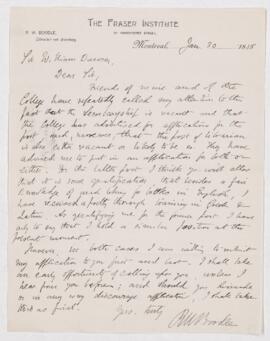 THE FRASER INSTITUTE
R. W. BOODLE,
Montreal, Jan 30 1888
Sir William Dawson,
Dear Sir,
Friends of mine and of the
College have repeatedly called my attention to the
fact that the Secretaryship is vacant and that
the College has advertised for applications for the
post, and, moreover, that the post of librarian
is also either vacant or likely to be so. They have
advised me to put in an application for both or
either. As for the latter post I think you will allow
that it is some qualification that besides a fair
knowledge of and liking for books in English, I
have received a pretty thorough training in Greek &
Latin. As qualifying me for the former post, I have
only to say that I hold a similar position at the
present moment.
However, in both cases I am willing to submit
my application to you first and last. I shall take
an early opportunity of calling upon you, unless I
hear from you before; and should you dissuade
or in any way discourage application, I shall take
this as final.
Yrs. truly
R W Boodle